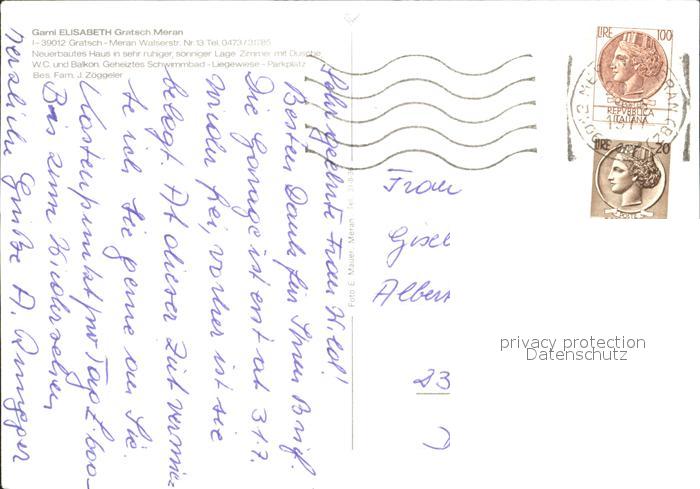 Garni ELISABETH Gratsch Meran
I-39012 Gratsch - Meran Walserstr. Nr.13 Tel. 0473/31785
Neuerbautes Haus in sehr ruhiger, sonniger Lage. Zimmer mit Dusche
W.C. und Balkon. Geheiztes Schwimmbad - Liegewiese - Parkplatz
Bes. Fam. J. Zöggeler
Sehr geehrte Frau Wild!
Besten Dank für Ihren Brief.
Die Garage ist erst ab 31.7.
wieder frei, vorher ist sie
belegt. Ab dieser Zeit vermie-
te ich sie gerne an Sie.
Kostenpunkt pro Tag L.
Bis zum Wiedersehen
herzliche Grüße A.
Foto E. Mauer - Meran - Tel.
Frau
Gisel
Albert
D3
LIRE 100
REPVBBLICA
ITALIANA
LIRE 20
POSTE
39012 MERAN
privacy protection
Datenschutz